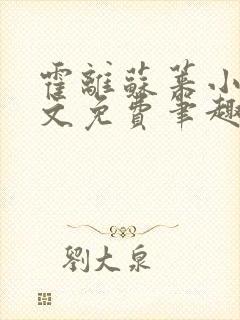 霍離蘇慕小
文免費筆趣
劉大泉